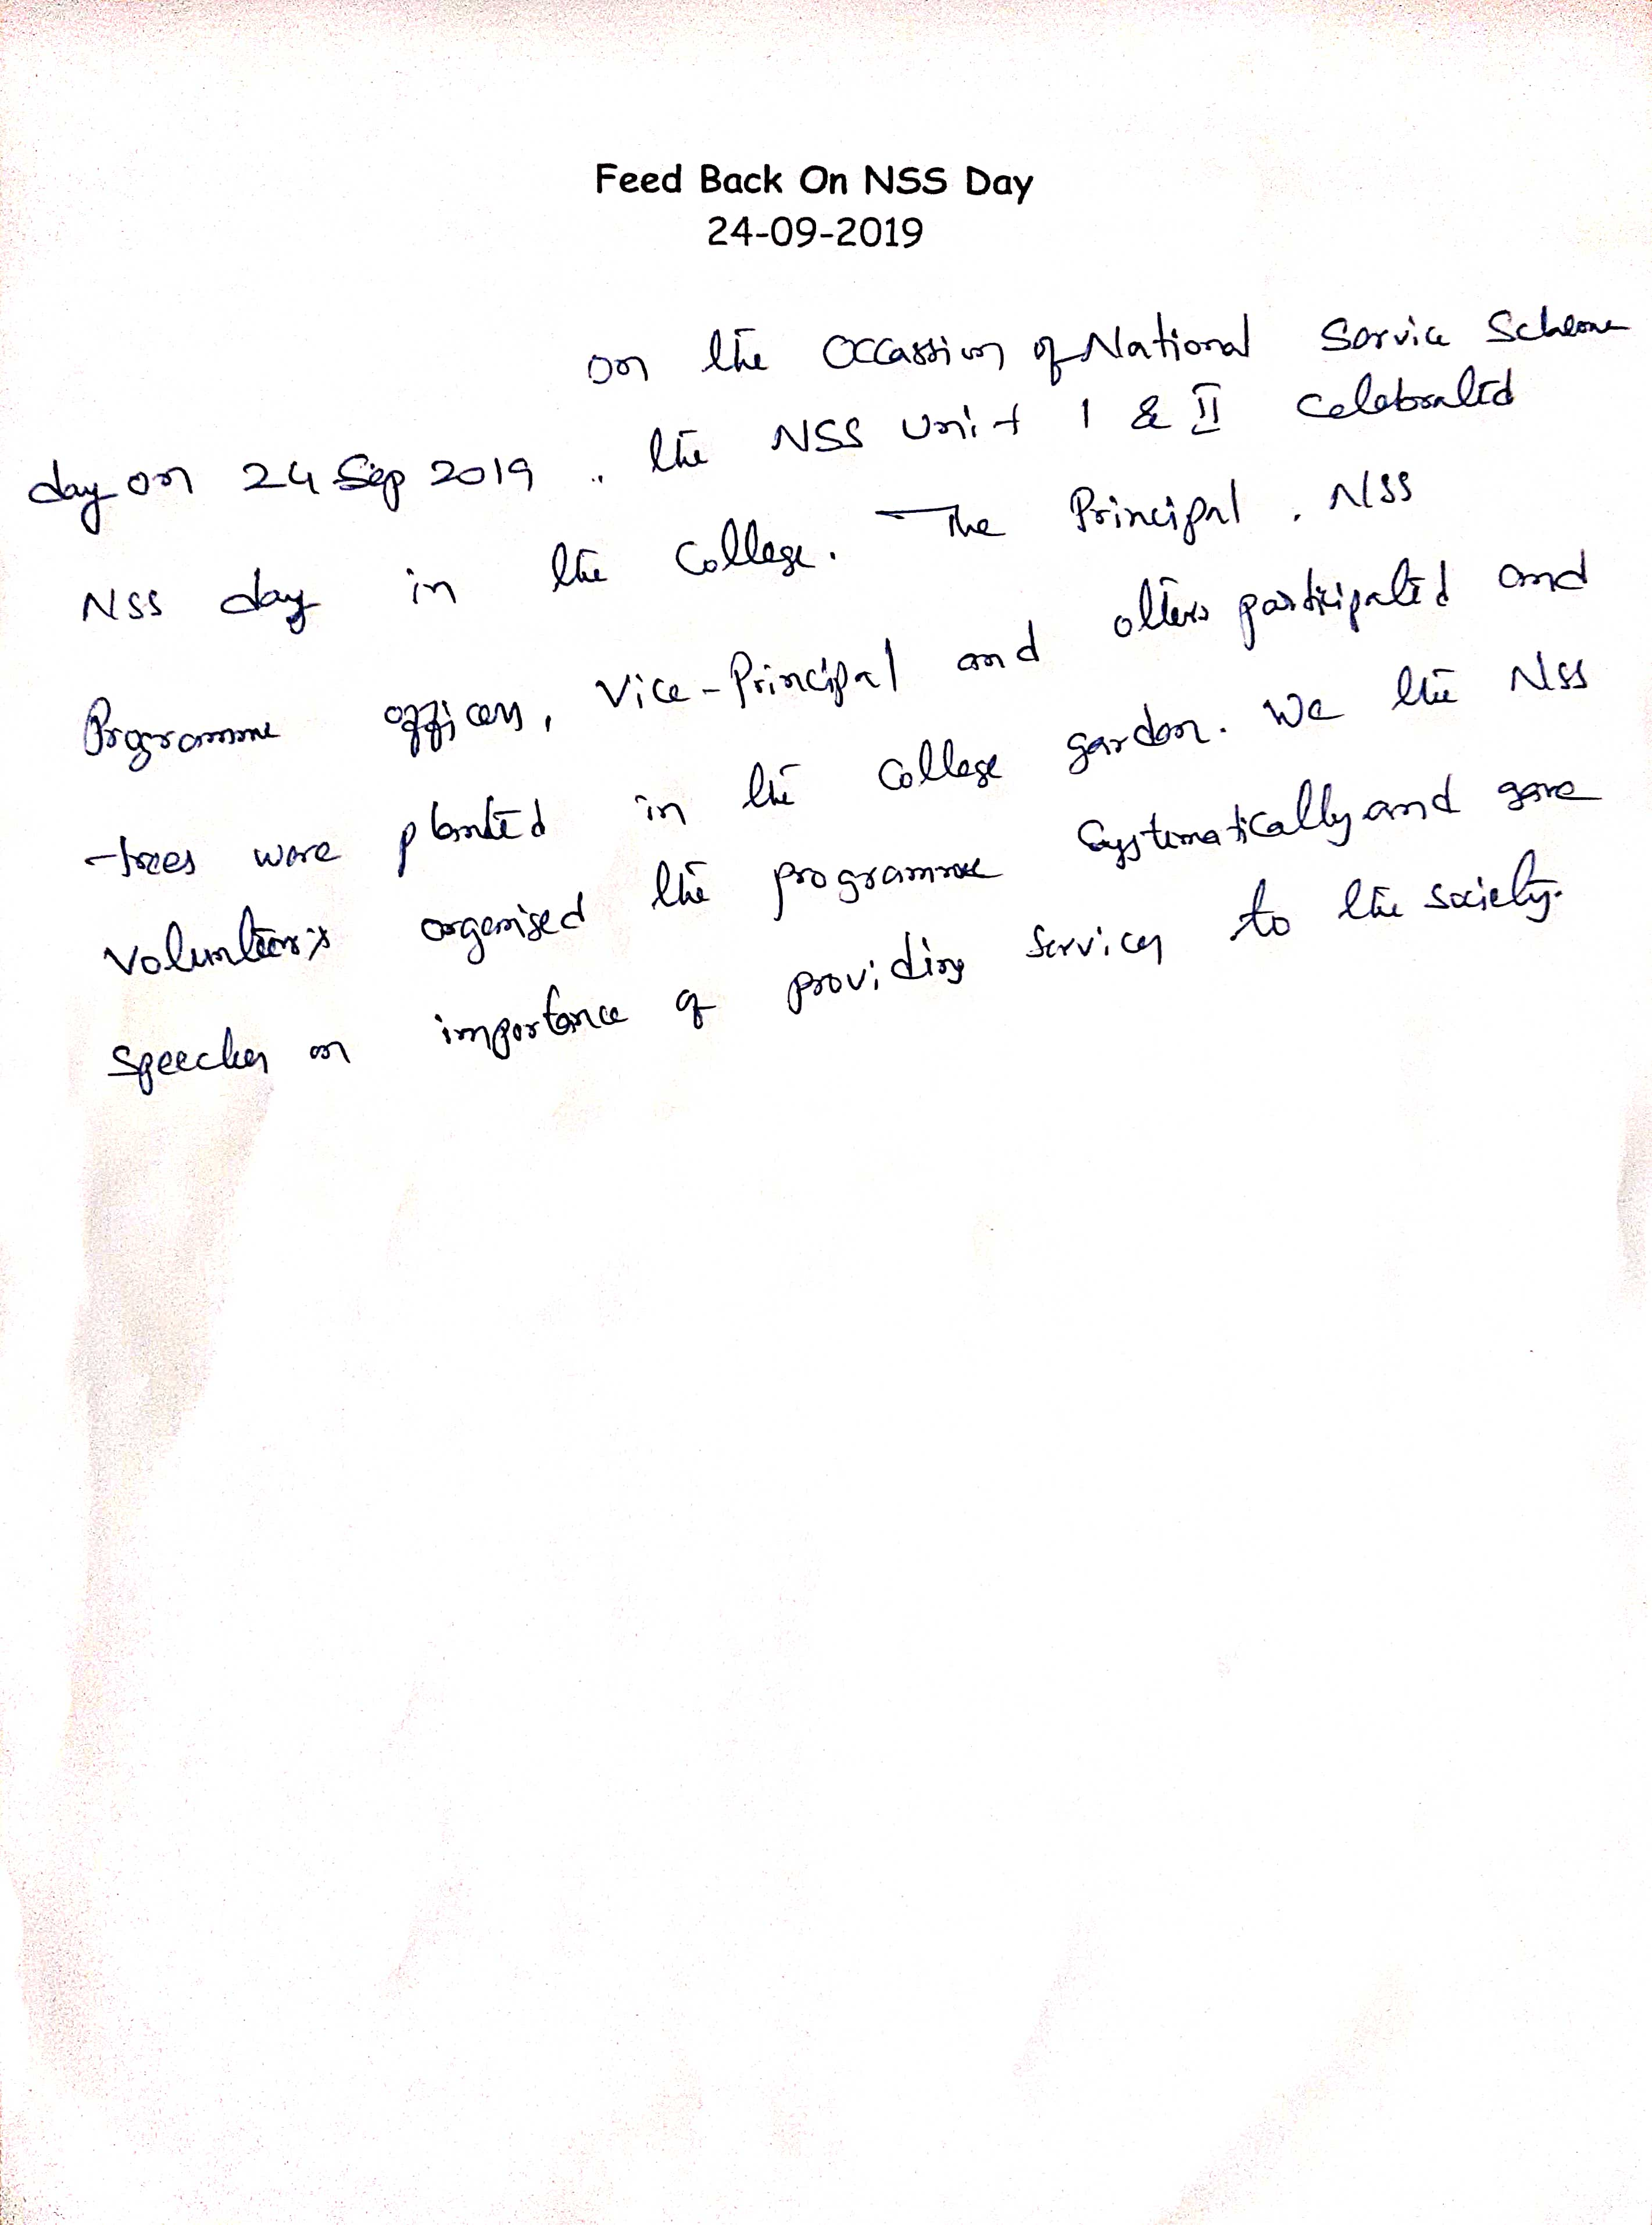 Feed Back On NSS Day
24-09-2019
on the occassion of National Service Scheme
day on 24 Sep 2019 .. the NSS Unit I & II celebrated
NSS day in the College. The Principal, NSS
Programme officers, Vice-Principal and others participated and
trees were planted in the College garden. We the NSS
Volunteers organised the programme Systematically and gave
Speeches on importance of providing services to the society.